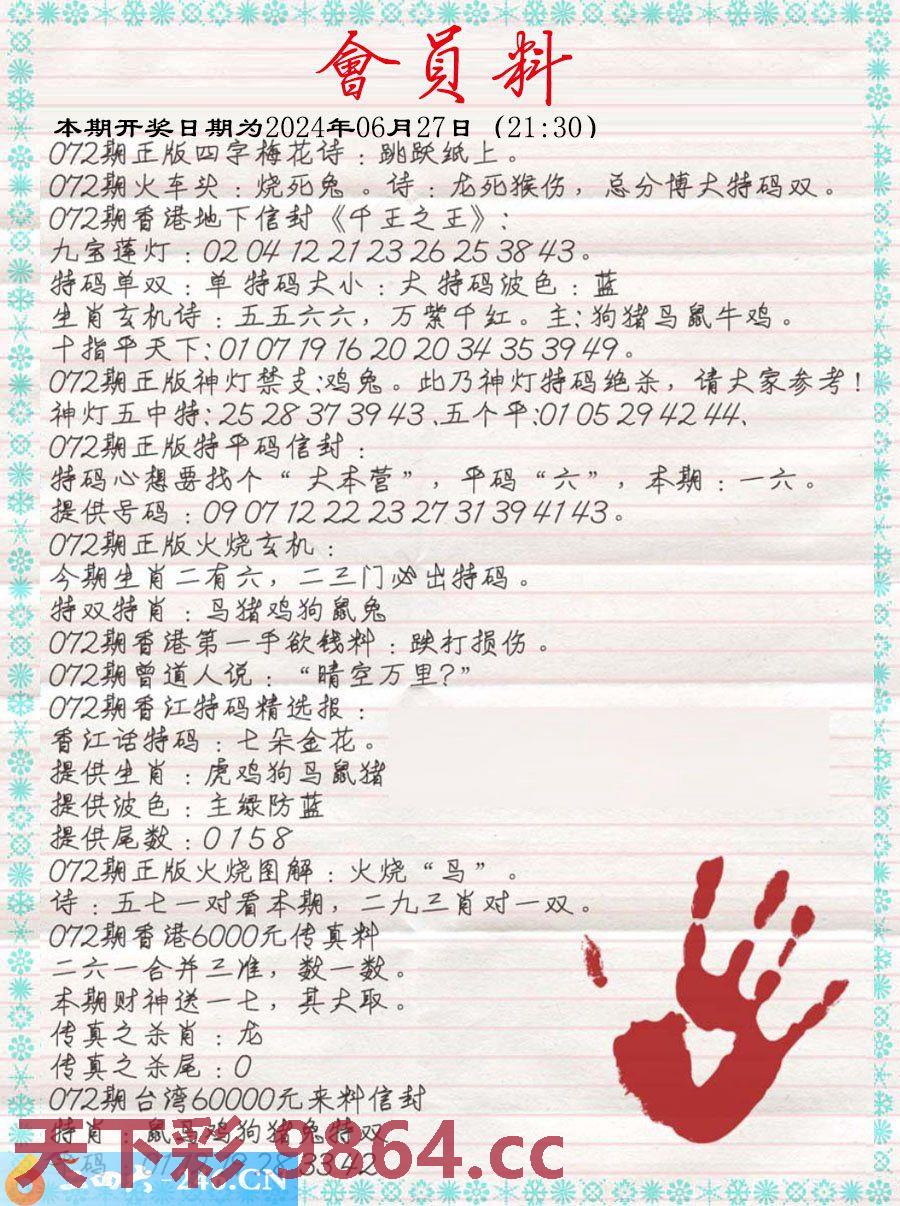 會員料
本期开奖日期为2024年06月27日（21:30）
072期正版四字梅花诗：跳跃纸上。
072期火车头：烧死兔 。诗：龙死猴伤，总分博大特码双。
072期香港地下信封《千王之王》:
九宝莲灯：02 04 12 21 23 26 25 38 43。
特码单双：单 特码大小：大 特码波色：蓝
生肖玄机诗：五五六六，万紫千红。主:狗猪马鼠牛鸡。
十指平天下:01 07 19 16 20 20 34 35 39 49。
072期正版神灯禁支:鸡兔。此乃神灯特码绝杀，请大家参考！
神灯五中特: 25 28 37 39 43 、五个平:01 05 29 42 44、
072期正版特平码信封：
特码心想要找个“ 大本营”，平码“六”，本期：一六。
提供号码：09 07 12 22 23 27 31 39 41 43。
072期正版火烧玄机：
今期生肖二有六，二三门必出特码。
特双特肖：马猪鸡狗鼠兔
072期香港第一手欲钱料：跌打损伤。
072期曾道人说：“晴空万里？”
072期香江特码精选报：
香江话特码：七朵金花。
提供生肖：虎鸡狗马鼠猪
提供波色：主绿防蓝
提供尾数：0 1 5 8
072期正版火烧图解：火烧“马”。
诗：五七一对看本期，二九三肖对一双。
072期香港6000元传真料
二六一合并三准，数一数。
本期财神送一七，其大取。
传真之杀肖：龙
传真之杀尾：0
072期台湾60000元来料信封
特肖：鼠马鸡狗猪兔特双
33 42
天下彩 9864.cc
246.CN